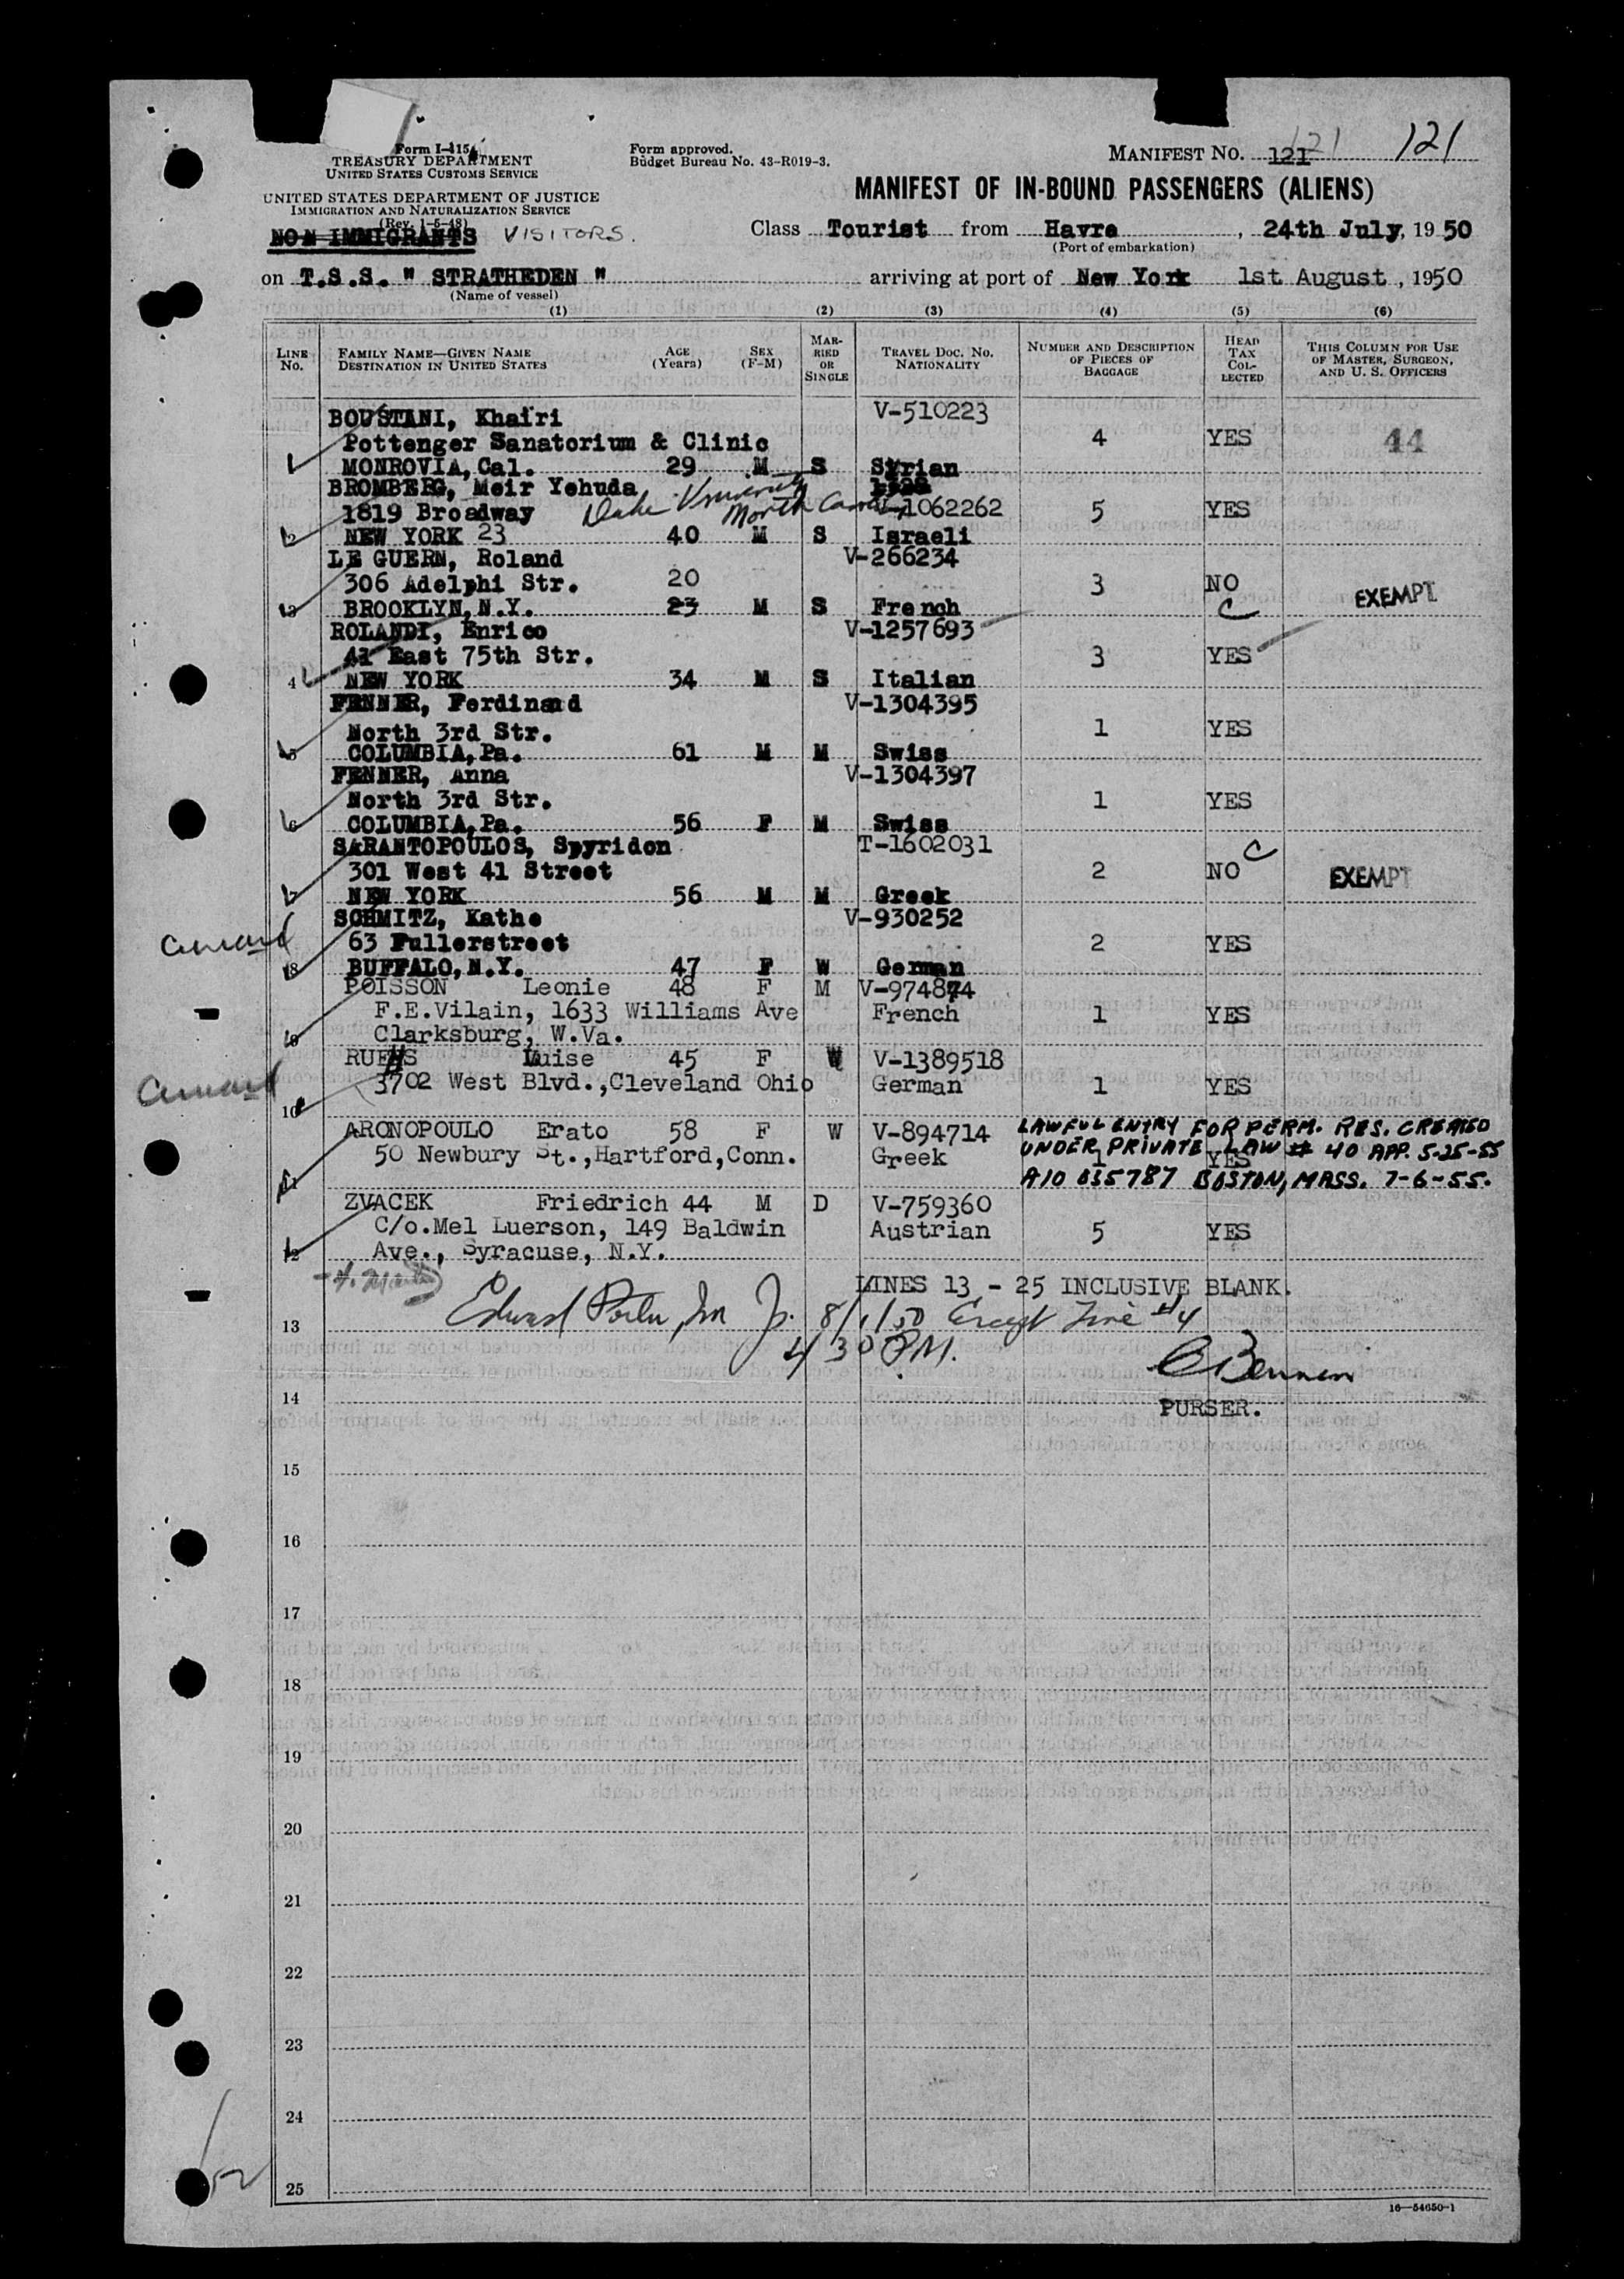 Form I-415
TREASURY DEPARTMENT
UNITED STATES CUSTOMS SERVICE
UNITED STATES DEPARTMENT OF JUSTICE
IMMIGRATION AND NATURALIZATION SERVICE
(Rev. 1-5-48)
NON IMMIGRANTS VISITORS.
Form approved.
Budget Bureau No. 43-R019-3.
MANIFEST No. 121 121 121
MANIFEST OF IN-BOUND PASSENGERS (ALIENS)
Class Tourist from Havre, 24th July, 1950
(Port of embarkation)
on T.S.S. " STRATHEDEN " arriving at port of New York 1st August, 1950
(Name of vessel)
(1) (2) (3) (4) (5) (6)
LINE No. FAMILY NAME—GIVEN NAME DESTINATION IN UNITED STATES AGE (Years) SEX (F-M) MARRIED OR SINGLE TRAVEL DOC. No. NATIONALITY NUMBER AND DESCRIPTION OF PIECES OF BAGGAGE HEAD TAX COLLECTED THIS COLUMN FOR USE OF MASTER, SURGEON, AND U. S. OFFICERS
BOUSTANI, Khairi V-510223
Pottenger Sanatorium & Clinic 4 YES 44
1 MONROVIA, Cal. 29 M S Syrian
BROMBERG, Meir Yehuda
Duke University North Carolina
1819 Broadway V-1062262 5 YES
2 NEW YORK 23 40 M S Israeli
LE GUERN, Roland V-266234
306 Adelphi Str. 20 3 NO EXEMPT
3 BROOKLYN, N.Y. 23 M S French C
ROLANDI, Enrico V-1257693
41 East 75th Str. 3 YES
4 NEW YORK 34 M S Italian
FENNER, Ferdinand V-1304395
North 3rd Str. 1 YES
5 COLUMBIA, Pa. 61 M M Swiss
FENNER, Anna V-1304397
North 3rd Str. 1 YES
6 COLUMBIA, Pa. 56 F M Swiss
SARANTOPOULOS, Spyridon T-1602031
301 West 41 Street 2 NO C EXEMPT
7 NEW YORK 56 M M Greek
SCHMITZ, Kathe V-930252
Cunard 63 Fullerstreet 2 YES
8 BUFFALO, N.Y. 47 F W German
POISSON Leonie 48 F M V-974874
F.E.Vilain, 1633 Williams Ave French 1 YES
9 Clarksburg, W.Va.
RUEHS Luise 45 F W V-1389518
Cunard 3702 West Blvd., Cleveland Ohio German 1 YES
10
ARONOPOULO Erato 58 F W V-894714 LAWFUL ENTRY FOR PERM. RES. CREATED
50 Newbury St., Hartford, Conn. Greek 1 YES UNDER PRIVATE LAW # 40 APP. 5-25-55
11 A10 035787 BOSTON, MASS. 7-6-55.
ZVACEK Friedrich 44 M D V-759360
C/o. Mel Luerson, 149 Baldwin Austrian 5 YES
12 Ave., Syracuse, N.Y.
LINES 13 - 25 INCLUSIVE BLANK.
13 Edward 8/1/50 Except Line #4
4 30 PM.
14
PURSER.
15
16
17
18
19
20
21
22
23
24
25
16—54650-1